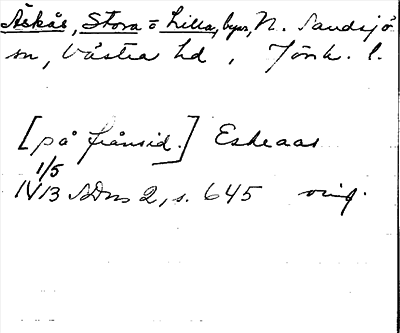 Äskås, Stora o Lilla, byar, N. Sandsjö
sn, Västra hd, Jönk. l.
[på frånsid.] Eskeaas
1/5
1413 SDns 2, s. 645 orig.